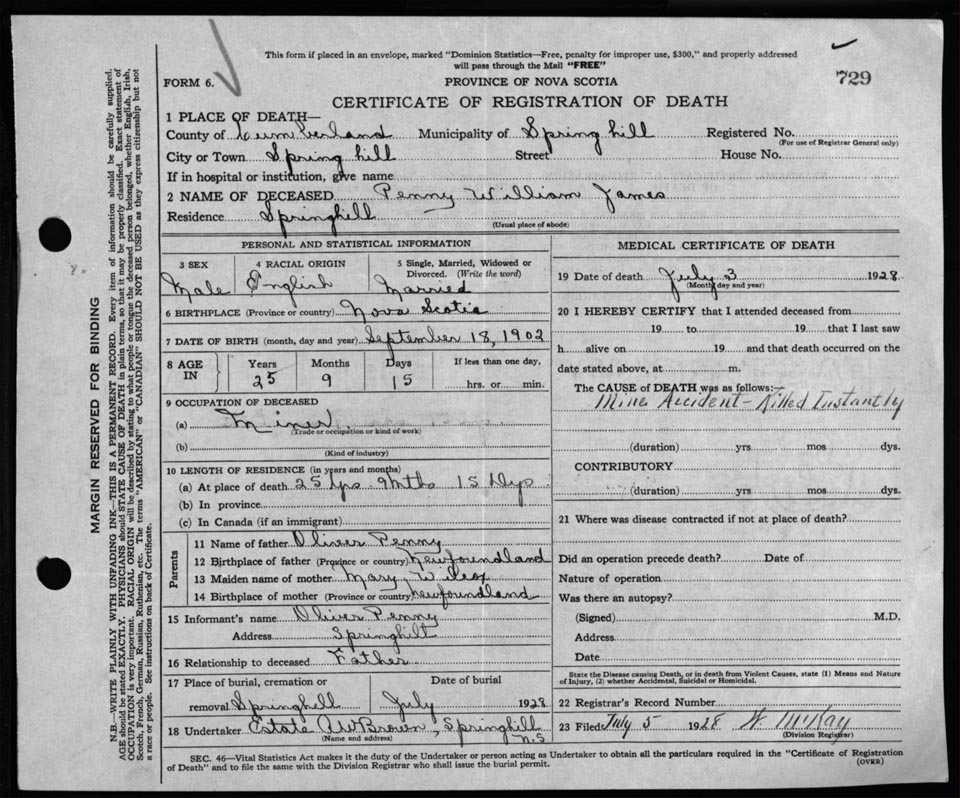 This form if placed in an envelope, marked "Dominion Statistics—Free, penalty for improper use, $300," and properly addressed
will pass through the Mail "FREE"
729
FORM 6.
PROVINCE OF NOVA SCOTIA
CERTIFICATE OF REGISTRATION OF DEATH
1 PLACE OF DEATH—
County of Cumberland Municipality of Spring hill Registered No.
(For use of Registrar General only)
City or Town Spring hill Street House No.
If in hospital or institution, give name
2 NAME OF DECEASED Penny William James
Residence Springhill
(Usual place of abode)
PERSONAL AND STATISTICAL INFORMATION
3 SEX 4 RACIAL ORIGIN 5 Single, Married, Widowed or
Divorced. (Write the word)
Male English Married
6 BIRTHPLACE (Province or country) Nova Scotia
7 DATE OF BIRTH (month, day and year) September 18, 1902
8 AGE IN Years Months Days If less than one day,
25 9 15 hrs. or min.
9 OCCUPATION OF DECEASED
(a) Miner
(Trade or occupation or kind of work)
(b)
(Kind of industry)
10 LENGTH OF RESIDENCE (in years and months)
(a) At place of death 25 yrs 9 Mths 15 Dys
(b) In province
(c) In Canada (if an immigrant)
Parents
11 Name of father Oliver Penny
12 Birthplace of father (Province or country) Newfoundland
13 Maiden name of mother Mary Wilcox
14 Birthplace of mother (Province or country) Newfoundland
15 Informant's name Oliver Penny
Address Springhill
16 Relationship to deceased Father
17 Place of burial, cremation or Date of burial
removal Springhill July 1928
18 Undertaker Estate A W Brown, Springhill
(Name and address) N.S
MEDICAL CERTIFICATE OF DEATH
19 Date of death July 3 1928
(Month, day and year)
20 I HEREBY CERTIFY that I attended deceased from
19 to 19 that I last saw
h alive on 19 and that death occurred on the
date stated above, at m.
The CAUSE of DEATH was as follows:—
Mine Accident - Killed Instantly
(duration) yrs mos dys.
CONTRIBUTORY
(duration) yrs mos dys.
21 Where was disease contracted if not at place of death?
Did an operation precede death? Date of
Nature of operation
Was there an autopsy?
(Signed) M.D.
Address
Date
State the Disease causing Death, or in death from Violent Causes, state (1) Means and Nature
of Injury, (2) whether Accidental, Suicidal or Homicidal.
22 Registrar's Record Number
23 Filed July 5 1928 W. McKay
(Division Registrar)
SEC. 46—Vital Statistics Act makes it the duty of the Undertaker or person acting as Undertaker to obtain all the particulars required in the "Certificate of Registration
of Death" and to file the same with the Division Registrar who shall issue the burial permit.
(OVER)
MARGIN RESERVED FOR BINDING
N.B.—WRITE PLAINLY WITH UNFADING INK—THIS IS A PERMANENT RECORD. Every item of information should be carefully supplied.
AGE should be stated EXACTLY. PHYSICIANS should STATE CAUSE OF DEATH in plain terms, so that it may be properly classified. Exact statement of
OCCUPATION is very important. RACIAL ORIGIN will be described by stating to what people or tongue the deceased person belonged, whether English, Irish,
Scotch, French, German, Russian, Ruthenian, etc. The terms "AMERICAN" or "CANADIAN" SHOULD NOT BE USED as they express citizenship but not
a race or people. See instructions on back of Certificate.